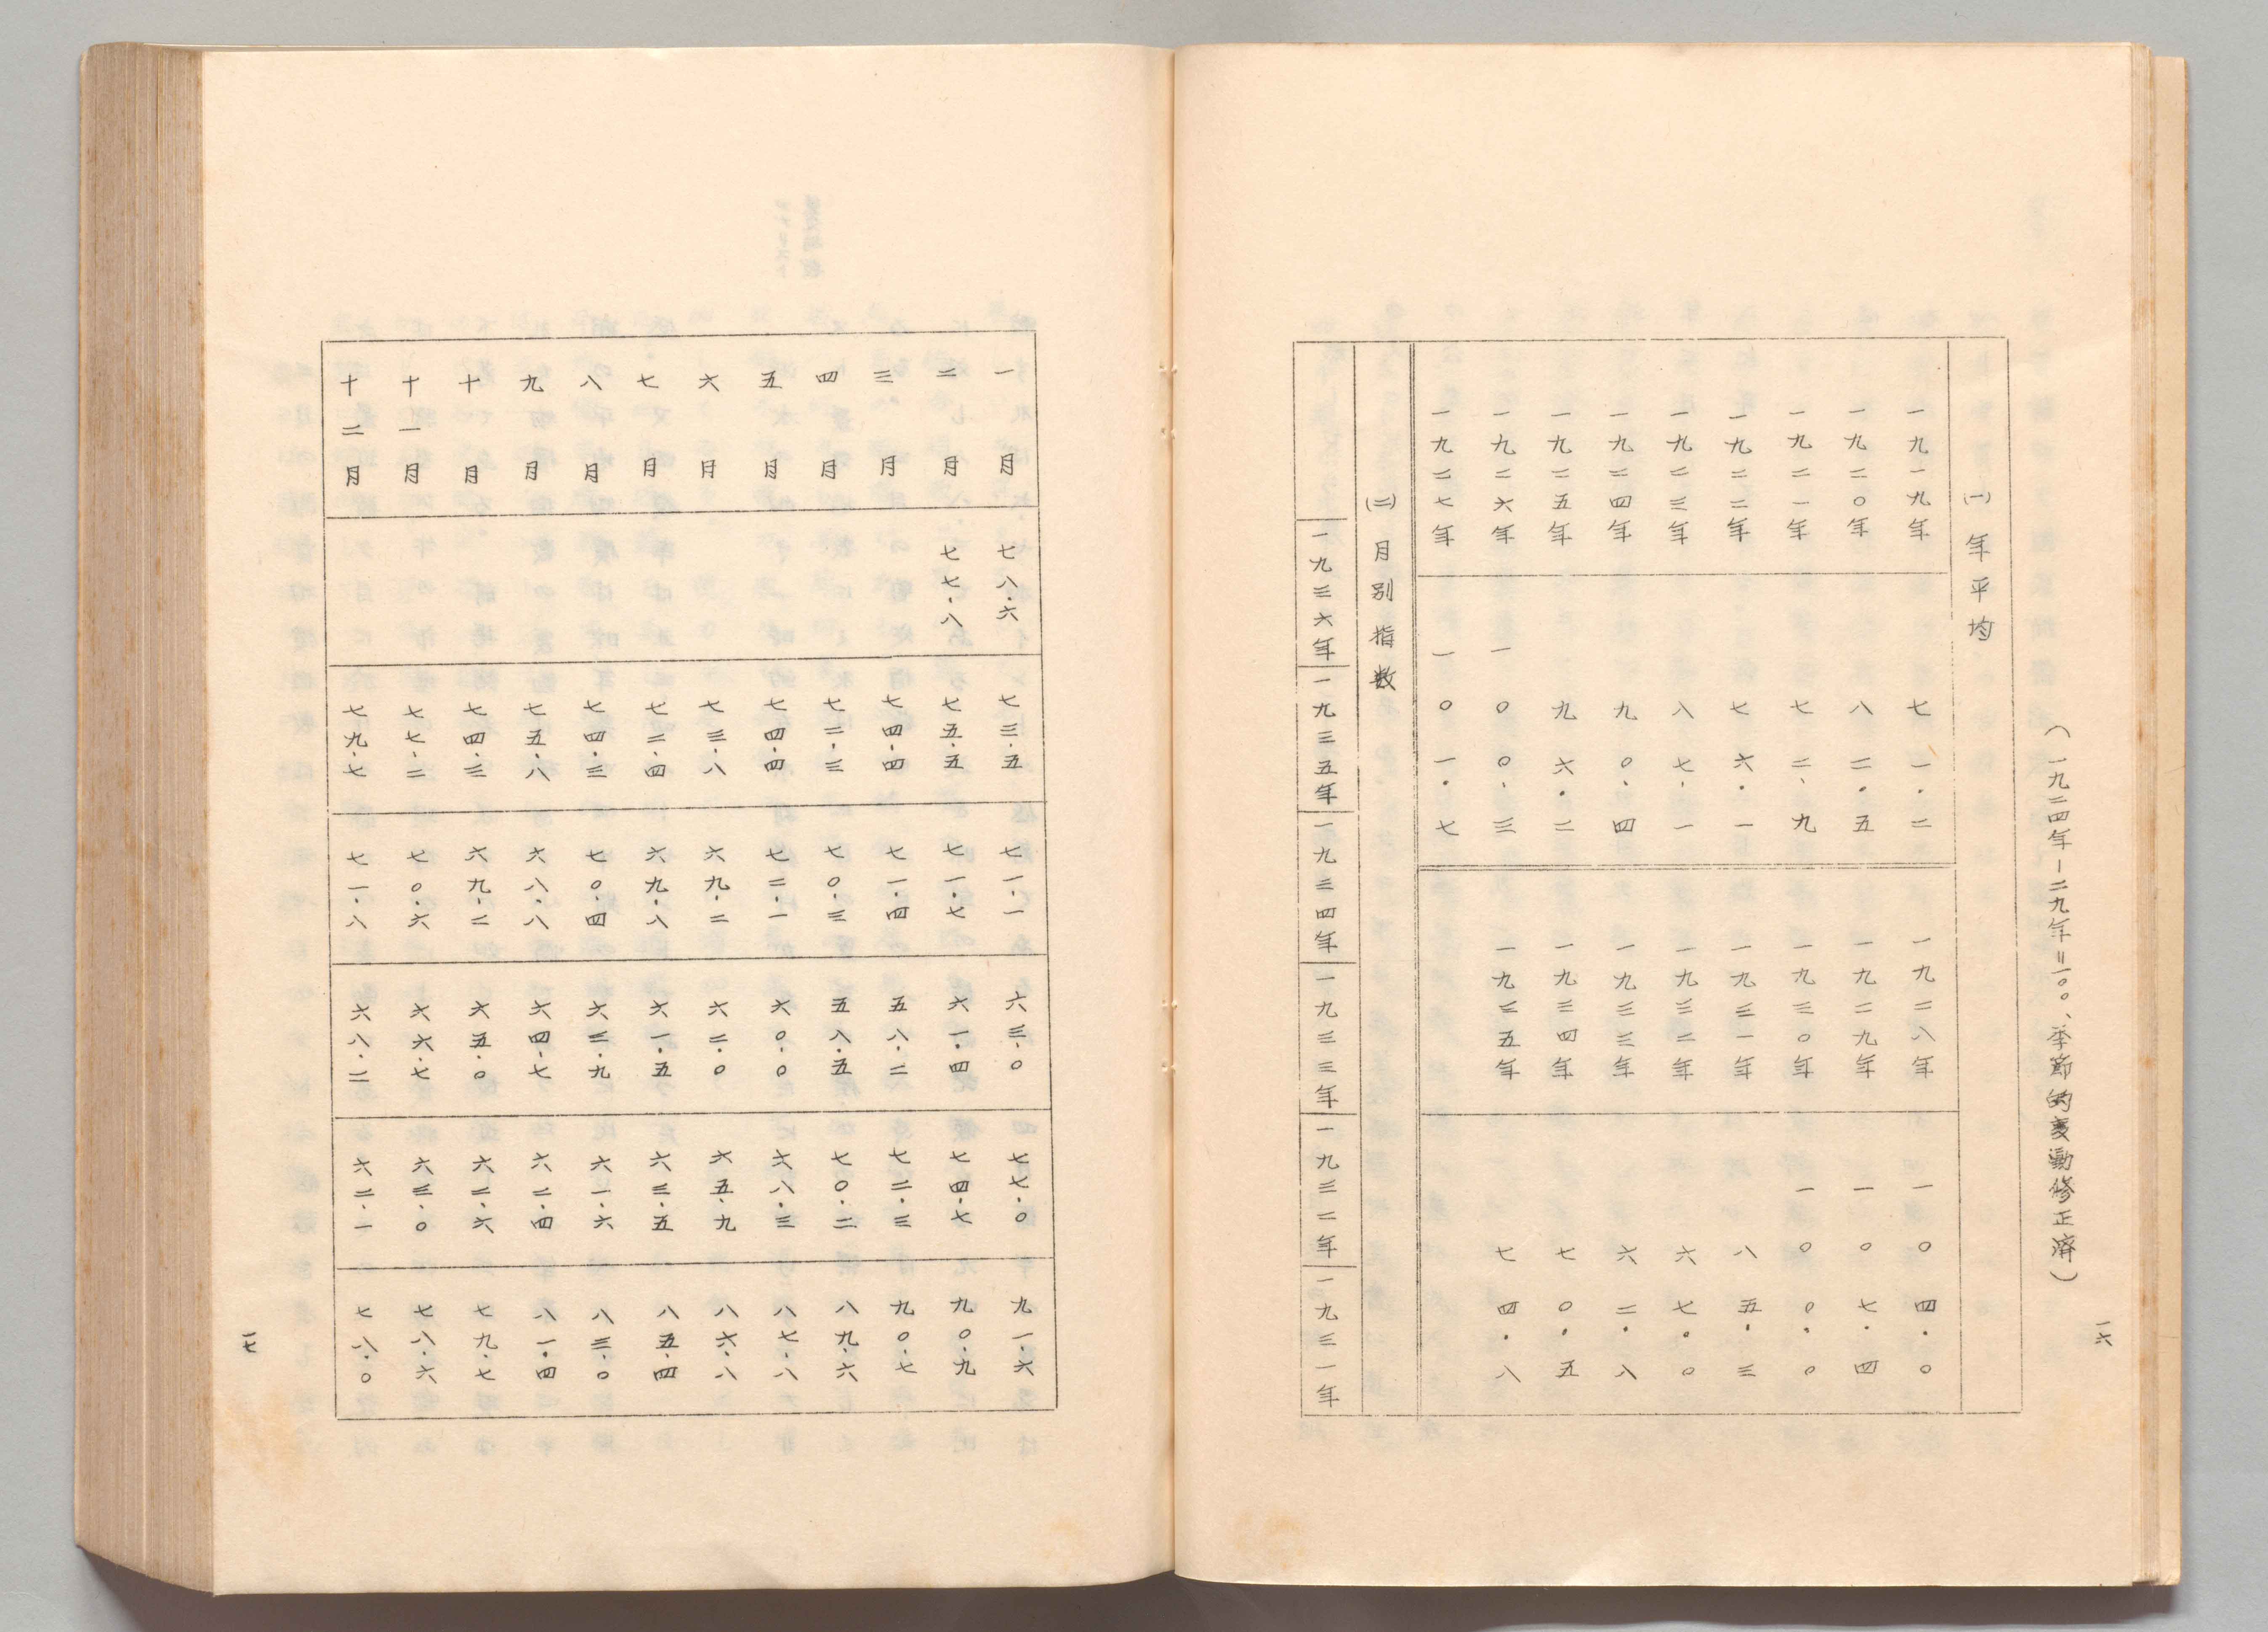 一六
(一九二四年-二九年=一〇〇、季節的変動修正濟)
(一) 年平均
一九一九年 七一.二 一九二八年 一〇四.〇
一九二〇年 八二.五 一九二九年 一〇七.四
一九二一年 七二.九 一九三〇年 一〇〇.〇
一九二二年 七六.一 一九三一年 八五.三
一九二三年 八七.一 一九三二年 六七.〇
一九二四年 九〇.四 一九三三年 六二.八
一九二五年 九六.二 一九三四年 七〇.五
一九二六年 一〇〇.三 一九三五年 七四.八
一九二七年 一〇一.七
(二) 月別指数
一九三六年 一九三五年 一九三四年 一九三三年 一九三二年 一九三一年
一月 七八.六 七三.五 七一.一 六三.〇 七七.〇 九一.六
二月 七七.八 七五.五 七一.七 六一.四 七四.七 九〇.九
三月 七四.四 七一.四 五八.二 七二.三 九〇.七
四月 七二.三 七〇.三 五八.五 七〇.二 八九.六
五月 七四.四 七二.一 六〇.〇 六八.三 八七.八
六月 七三.八 六九.二 六二.〇 六五.九 八六.八
七月 七二.四 六九.八 六一.五 六三.五 八五.四
八月 七四.三 七〇.四 六三.九 六一.六 八三.〇
九月 七五.八 六八.八 六四.七 六二.四 八一.四
十月 七四.三 六九.二 六五.〇 六二.六 七九.七
十一月 七七.二 七〇.六 六六.七 六三.〇 七八.六
十二月 七九.七 七一.八 六八.二 六二.一 七八.〇
一七